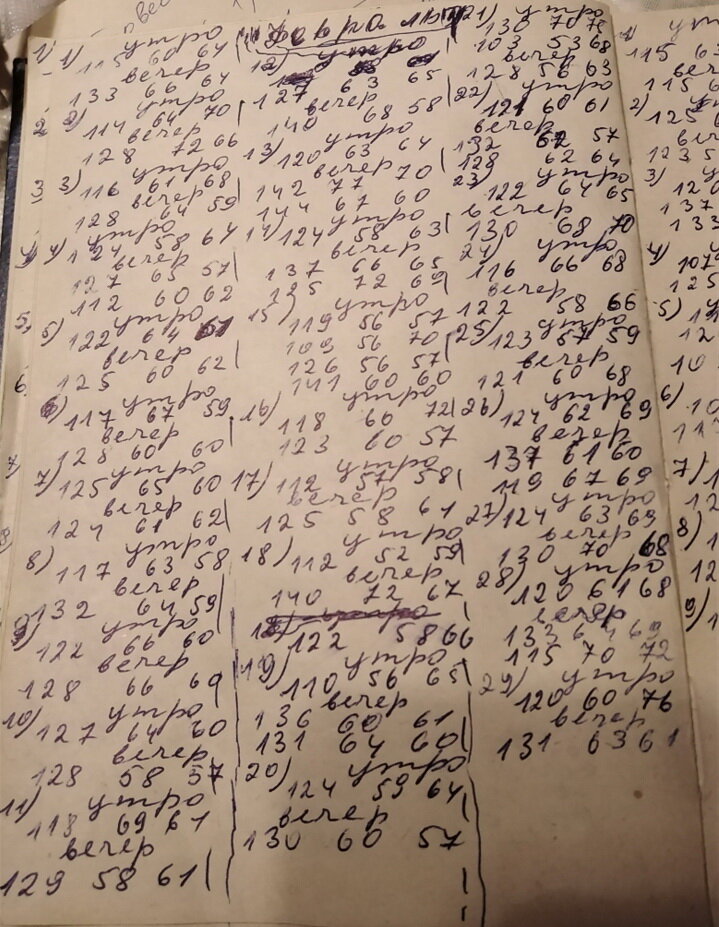 1) 1) утро
115 60 64
вечер
133 66 64
2 2) утро
114 64 70
вечер
128 72 66
3 3) утро
116 61 68
вечер
128 64 59
4 4) утро
124 58 64
вечер
127 65 57
112 60 62
5, 5) утро
122 64 61
вечер
125 60 62
6 6) утро
117 67 59
вечер
128 60 60
7 7) утро
125 65 60
вечер
124 61 62
8) утро
117 63 58
вечер
132 64 59
9) утро
122 66 60
вечер
128 66 69
10) утро
127 64 60
вечер
128 58 57
11) утро
118 69 61
вечер
129 58 61
Февраль
12) утро
127 63 65
вечер
140 68 58
13) утро
120 63 64
вечер
142 77 70
144 67 60
14) утро
124 58 63
вечер
137 66 65
125 72 69
15) утро
119 56 57
109 56 70
126 56 57
141 60 60
16) утро
118 60 72
123 60 57
17) утро
112 57 58
вечер
125 58 61
18) утро
112 52 59
вечер
140 72 67
122 58 66
19) утро
110 56 65
вечер
136 60 61
131 64 60
20) утро
124 59 64
вечер
130 60 57
21) утро
130 70 76
103 53 68
вечер
128 56 63
22) утро
121 60 61
вечер
132 62 57
128 62 64
23) утро
122 64 65
вечер
130 68 70
24) утро
116 66 68
вечер
122 58 66
25) утро
123 57 59
вечер
121 60 68
26) утро
124 62 69
вечер
137 61 60
119 67 69
27) утро
124 63 69
вечер
130 70 68
28) утро
120 61 68
вечер
133 64 69
115 70 72
29) утро
120 60 76
вечер
131 63 61